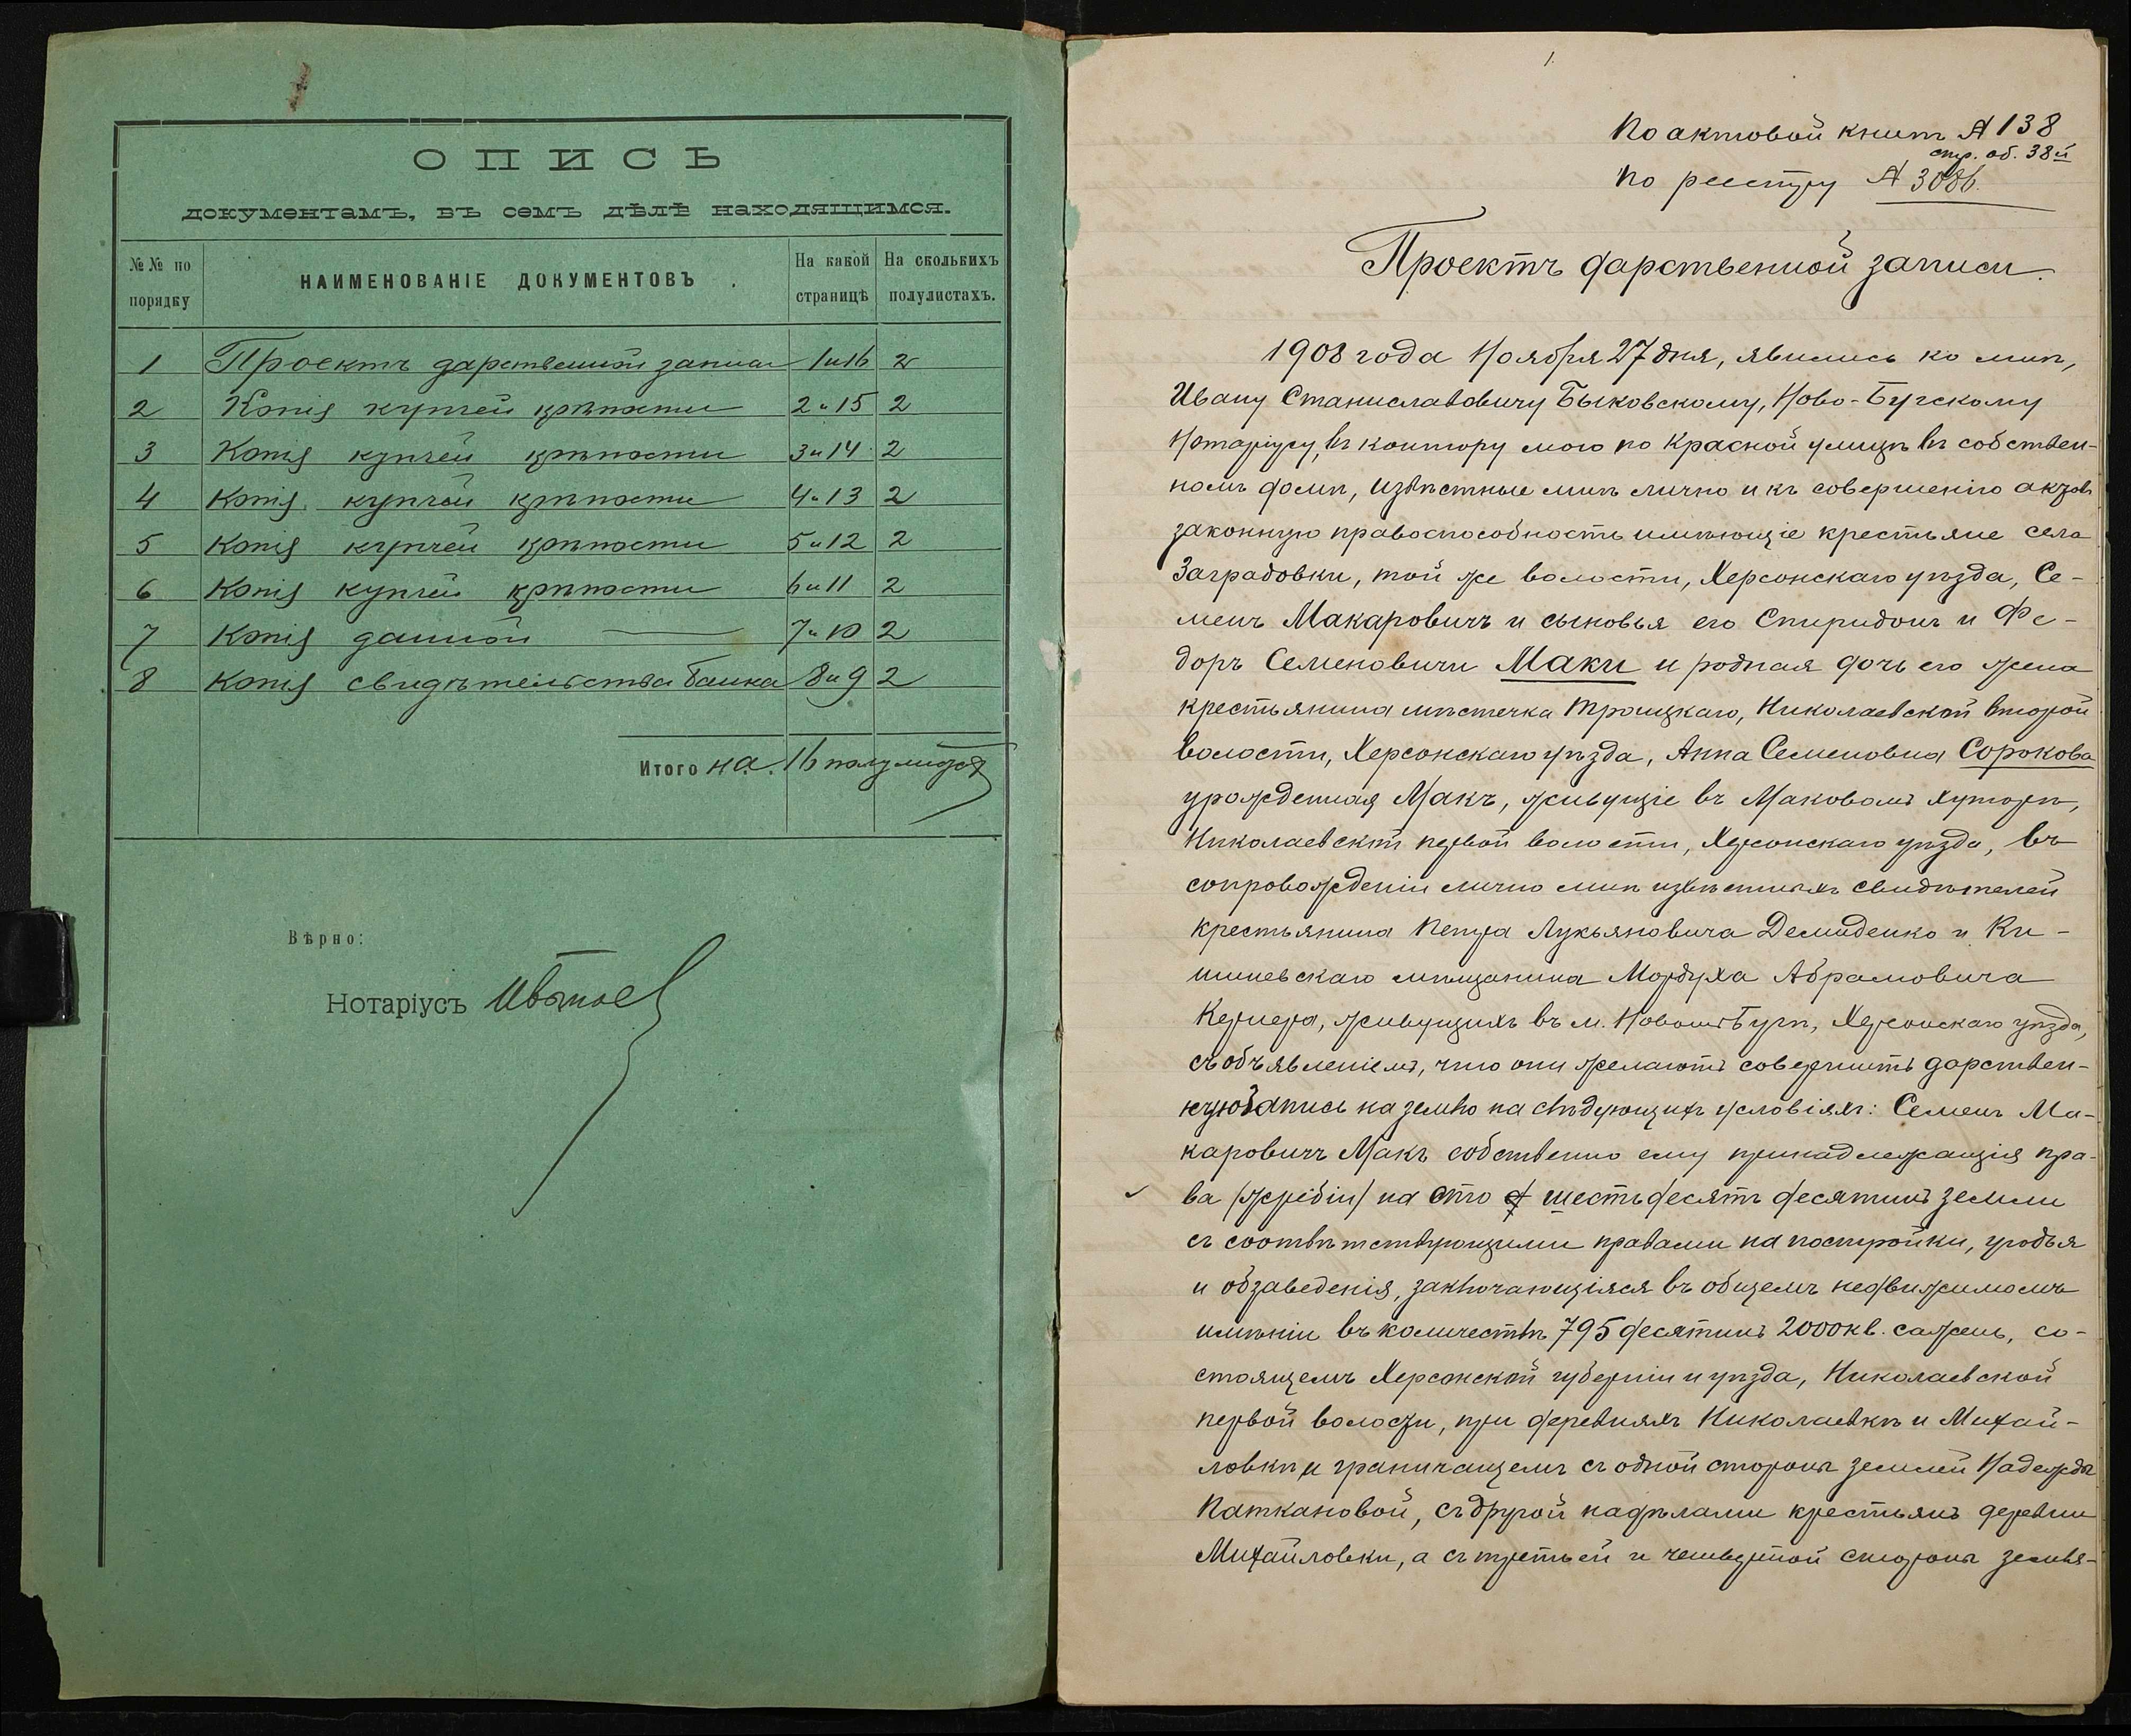 ОПИСЬ
документамъ, въ семъ дѣлѣ находящимся.
№№ по порядку
НАИМЕНОВАНІЕ ДОКУМЕНТОВЪ
На какой страницѣ
На сколькихъ полулистахъ.
1 Проектъ дарственной записи 1 и 16 2
2 Копія купчей крѣпости 2 и 15 2
3 Копія купчей крѣпости 3 и 14 2
4 Копія купчей крѣпости 4 и 13 2
5 Копія купчей крѣпости 5 и 12 2
6 Копія купчей крѣпости 6 и 11 2
7 Копія данной 7 и 10 2
8 Копія свидѣтельства банка 8 и 9 2
Итого на 16 полулистахъ
Вѣрно:
Нотаріусъ
1
По актовой книгѣ № 138
стр. об. 38й
По реестру № 3086.
Проектъ дарственной записи.
1908 года Ноября 27 дня, явились ко мнѣ,
Ивану Станиславовичу Быковскому, Ново-Бугскому
Нотаріусу, въ контору мою по Красной улицѣ въ собствен-
номъ домѣ, извѣстные мнѣ лично и къ совершенію актовъ
законную правоспособность имѣющіе крестьяне села
Заградовки, той же волости, Херсонскаго уѣзда, Се-
менъ Макаровичъ и сыновья его Спиридонъ и Фе-
доръ Семеновичи Маки и родная дочь его жена
крестьянина мѣстечка Троицкаго, Николаевской второй
волости, Херсонскаго уѣзда, Анна Семеновна Сорокова
урожденная Макъ, живущіе въ Маковомъ хуторѣ,
Николаевской первой волости, Херсонскаго уѣзда, въ
сопровожденіи лично мнѣ извѣстныхъ свидѣтелей
крестьянина Петра Лукьяновича Демиденко и Ки-
шиневскаго мѣщанина Мордуха Абрамовича
Кернера, живущихъ въ м. Новомъ Бугѣ, Херсонскаго уѣзда,
съ объявленіемъ, что они желаютъ совершить дарствен-
ную запись на землю на слѣдующихъ условіяхъ: Семенъ Ма-
каровичъ Макъ собственно ему принадлежащія пра-
ва /жребіи/ на сто шестьдесятъ десятинъ земли
съ соотвѣтствующими правами на постройки, угодья
и обзаведенія, заключающіяся въ общемъ недвижимомъ
имѣніи въ количествѣ 795 десятинъ 2000 кв. сажень, со-
стоящемъ Херсонской губерніи и уѣзда, Николаевской
первой волости, при деревняхъ Николаевкѣ и Михай-
ловкѣ и граничащемъ съ одной стороны землей Надежды
Паткановой, съ другой надѣлами крестьянъ деревни
Михайловки, а съ третьей и четвертой стороны земля-